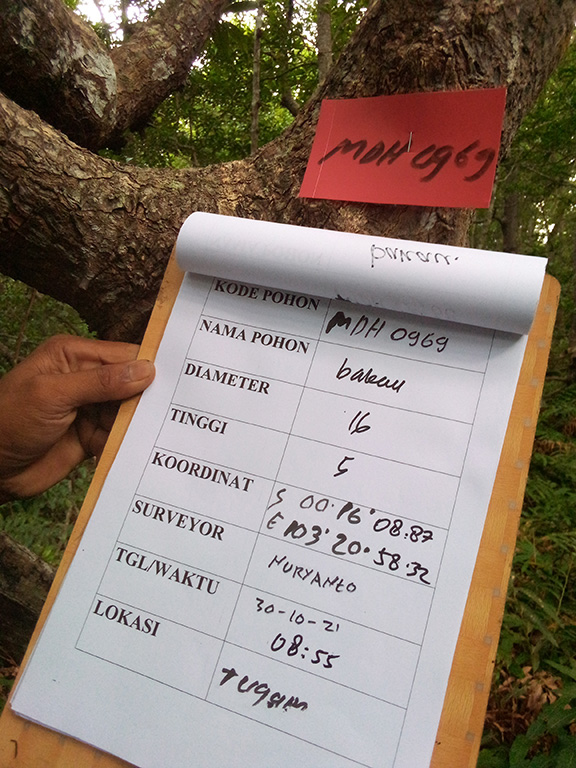 MDH 0969
KODE POHON MDH 0969
NAMA POHON bakau
DIAMETER 16
TINGGI 5
KOORDINAT S 00.16'08.87
E 103.20.58.32
SURVEYOR NURYANTO
TGL/WAKTU 30-10-21
08:55
LOKASI